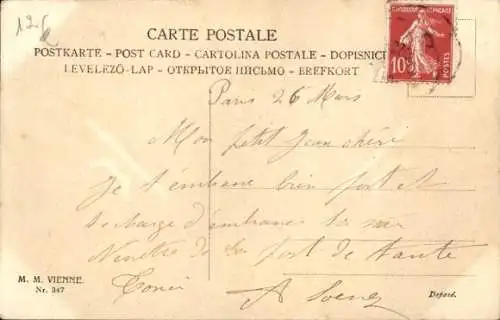 125
CARTE POSTALE
POSTKARTE - POST CARD - CARTOLINA POSTALE - DOPISNICE
LEVELEZŐ-LAP - ОТКРЫТОЕ ПИСЬМО - BREFKORT
10
POSTES
Paris 26 Mars
Mon petit Jean chéri
Je t'embrasse bien fort et
te charge d'embrasser
de la part de tante
M. M. VIENNE.
Nr. 347
Deposé.